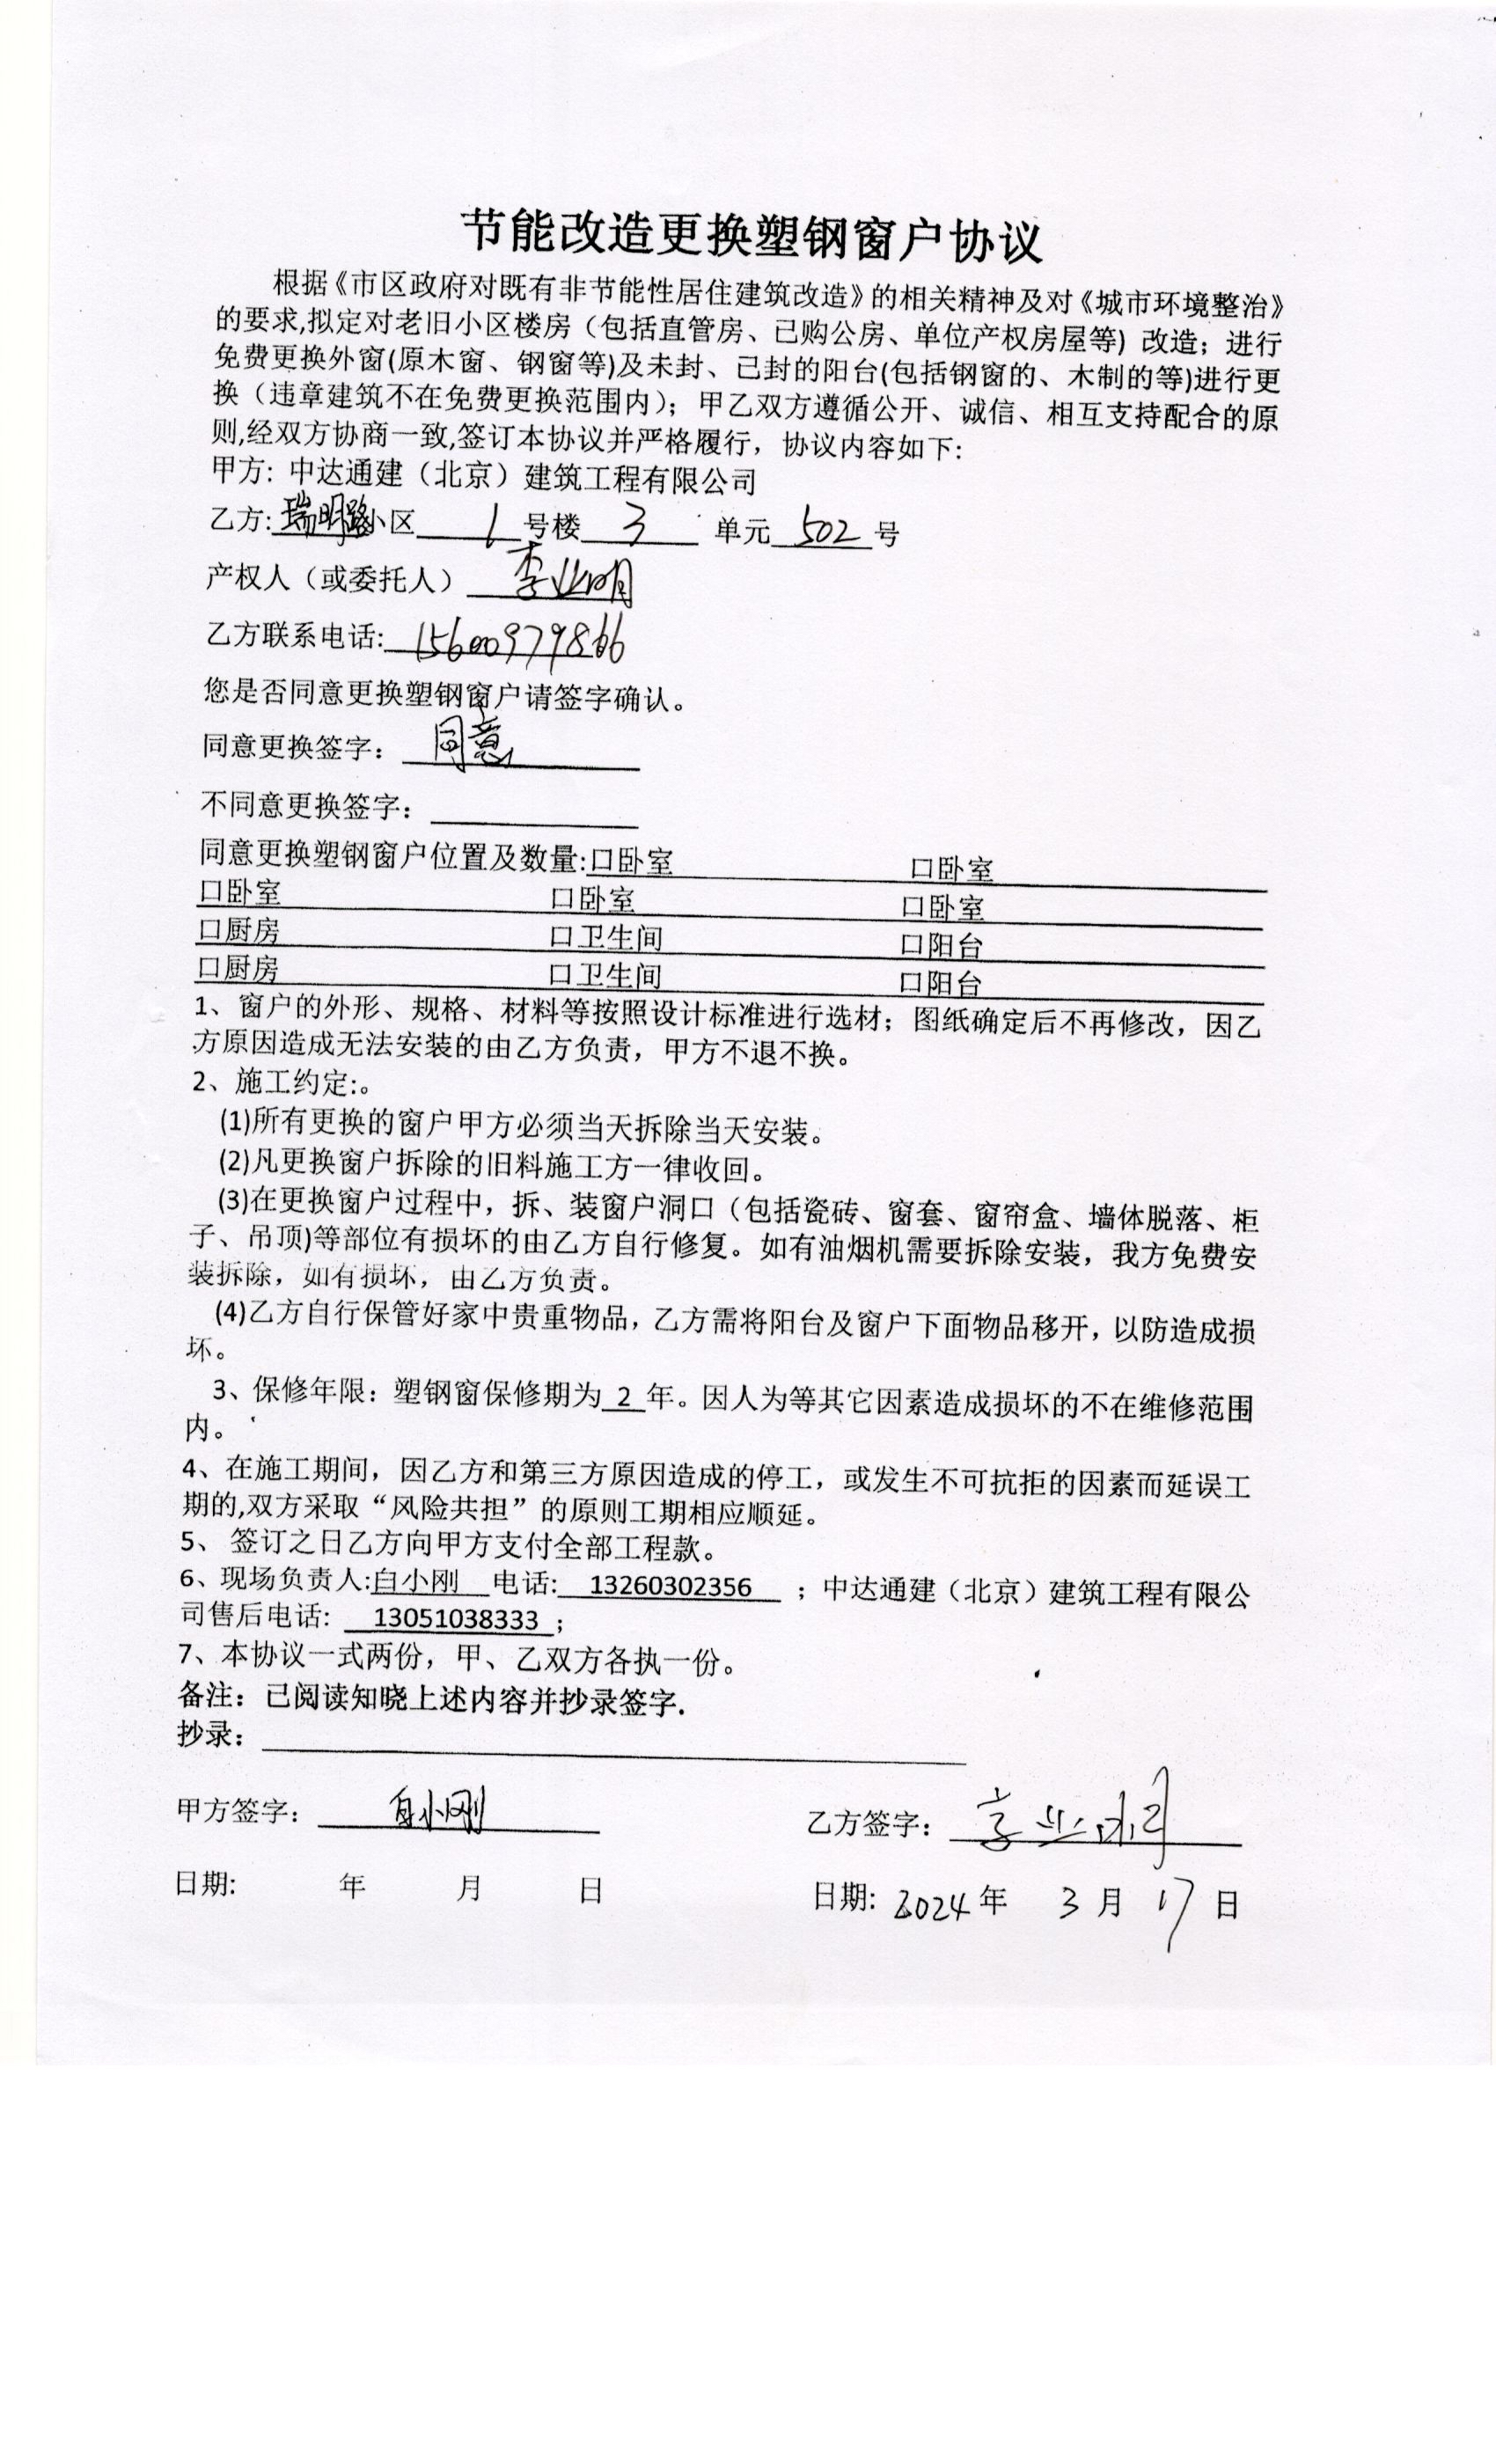 节能改造更换塑钢窗户协议
根据《市区政府对既有非节能性居住建筑改造》的相关精神及对《城市环境整治》
的要求,拟定对老旧小区楼房（包括直管房、已购公房、单位产权房屋等）改造；进行
免费更换外窗(原木窗、钢窗等)及未封、己封的阳台(包括钢窗的、木制的等)进行更
换（违章建筑不在免费更换范围内）；甲乙双方遵循公开、诚信、相互支持配合的原
则,经双方协商一致,签订本协议并严格履行，协议内容如下：
甲方: 中达通建（北京）建筑工程有限公司
乙方: 瑞明路小区 1 号楼 3 单元 502 号
产权人（或委托人） 李业明
乙方联系电话: 15600979866
您是否同意更换塑钢窗户请签字确认。
同意更换签字： 同意
不同意更换签字：
同意更换塑钢窗户位置及数量:口卧室 口卧室
口卧室 口卧室 口卧室
口厨房 口卫生间 口阳台
口厨房 口卫生间 口阳台
1、窗户的外形、规格、材料等按照设计标准进行选材；图纸确定后不再修改，因乙
方原因造成无法安装的由乙方负责，甲方不退不换。
2、施工约定:。
(1)所有更换的窗户甲方必须当天拆除当天安装。
(2)凡更换窗户拆除的旧料施工方一律收回。
(3)在更换窗户过程中，拆、装窗户洞口（包括瓷砖、窗套、窗帘盒、墙体脱落、柜
子、吊顶)等部位有损坏的由乙方自行修复。如有油烟机需要拆除安装，我方免费安
装拆除，如有损坏，由乙方负责。
(4)乙方自行保管好家中贵重物品，乙方需将阳台及窗户下面物品移开，以防造成损
坏。
3、保修年限：塑钢窗保修期为 2 年。因人为等其它因素造成损坏的不在维修范围
内。
4、在施工期间，因乙方和第三方原因造成的停工，或发生不可抗拒的因素而延误工
期的,双方采取“风险共担”的原则工期相应顺延。
5、 签订之日乙方向甲方支付全部工程款。
6、现场负责人:白小刚 电话: 13260302356 ；中达通建（北京）建筑工程有限公
司售后电话: 13051038333 ；
7、本协议一式两份，甲、乙双方各执一份。
备注：已阅读知晓上述内容并抄录签字.
抄录：
甲方签字： 白小刚 乙方签字： 李业明
日期: 年 月 日 日期: 2024年 3月 17日